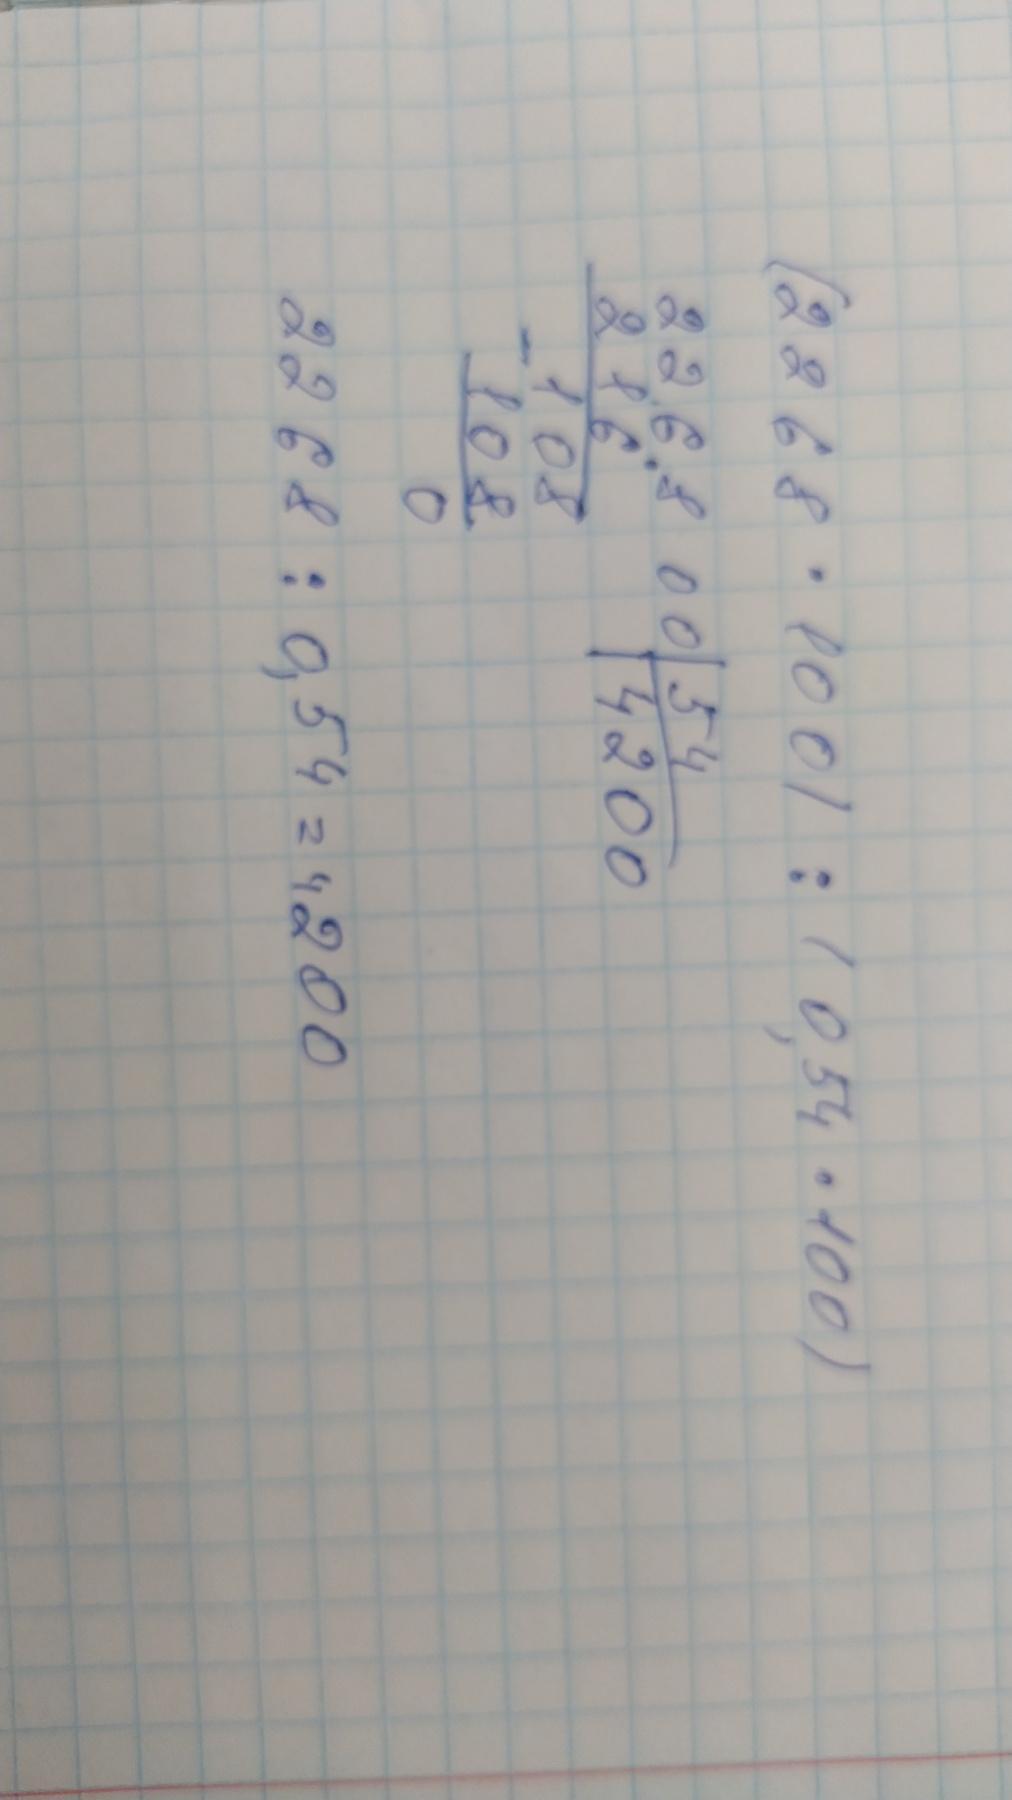 (2268 · 100) : (0,54 · 100)
226800 | 54
216 | 4200
- 108
108
0
2268 : 0,54 = 4200